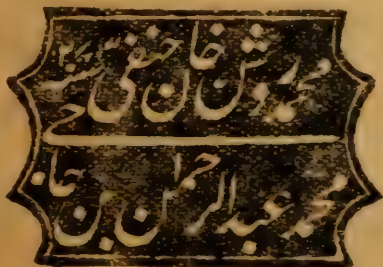 محمد روشن خان حنفی سنه
محمد عبد الرحمن بن حاجی